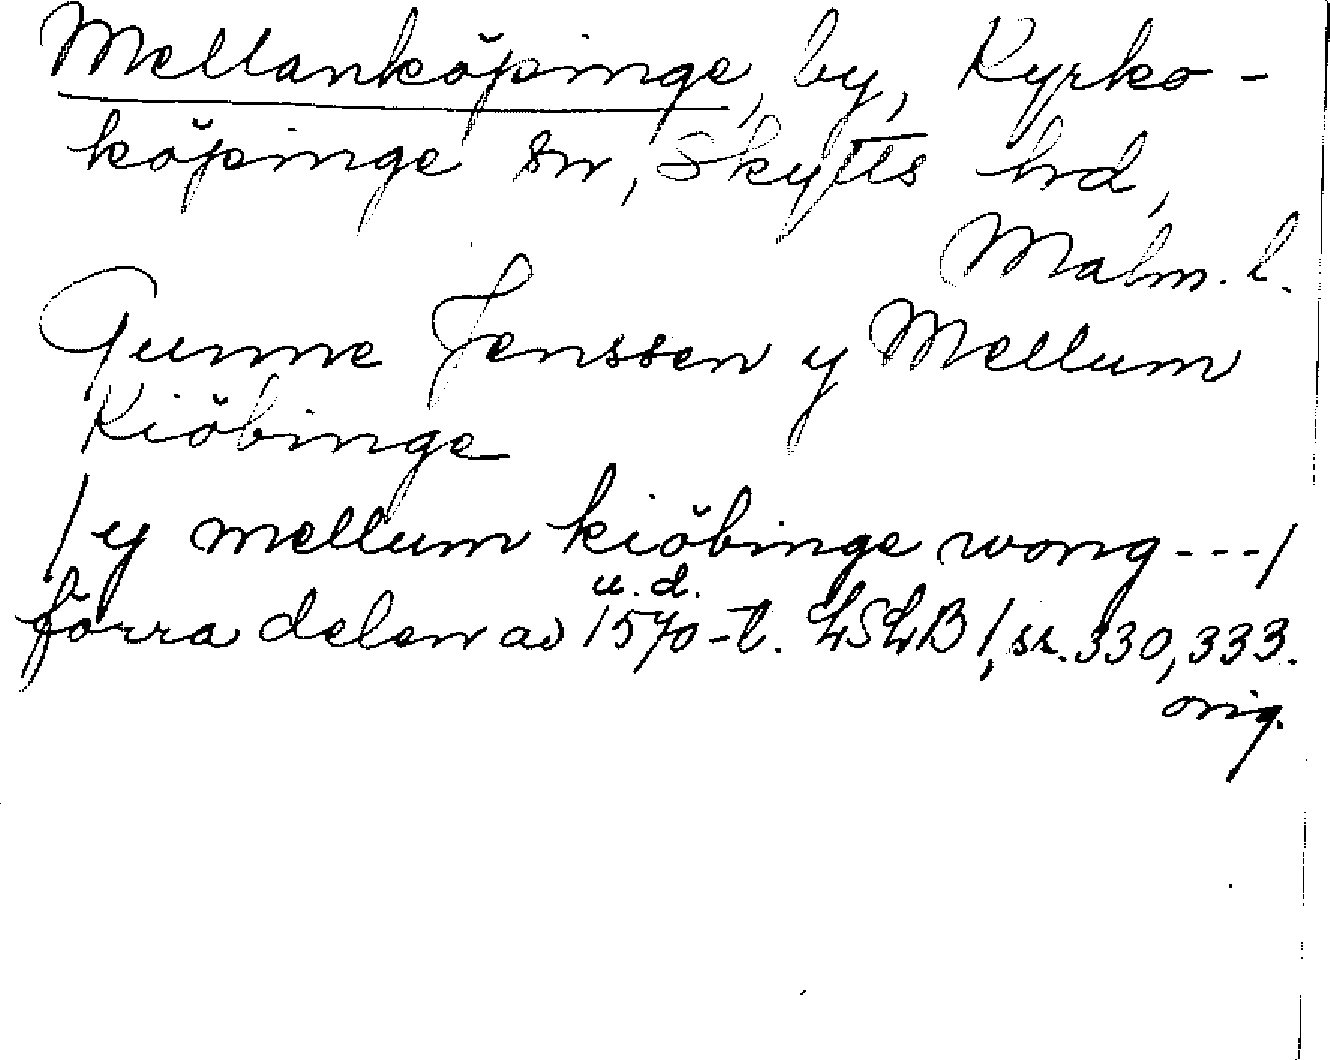 Mellanköpinge, by, Kyrko-
köpinge sn, Skytts hd,
Malm. l.
Gunne Jenssen y Mellum
Kiöbinge
/y mellum kiöbinge wong---/
u.d.
förra delen av 1570-t. LSLB 1, ss. 330, 333.
orig.